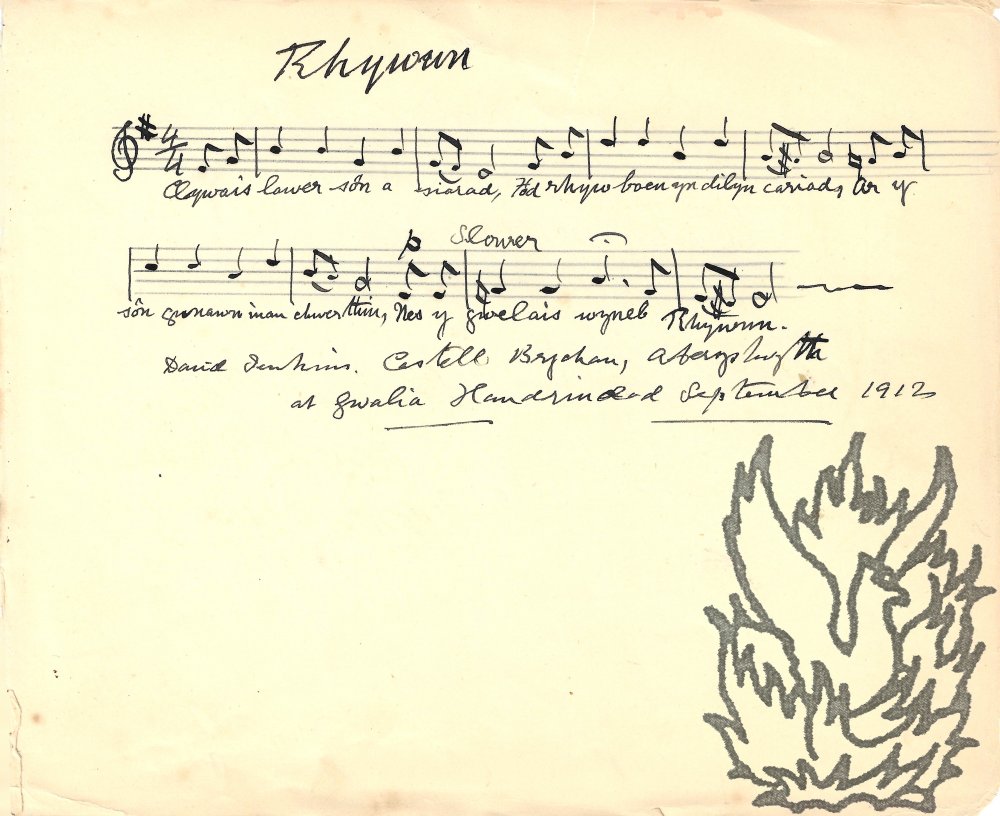 Rhywun
4/4
Clywais lawer sôn a siarad, Fod rhyw boen yn dilyn cariad, Ar y
p Slower
sôn gwnawn inau chwerthin, Nes y gwelais wyneb Rhywun.
David Jenkins. Castell Brychan, Aberystwyth
at Gwalia Llandrindod September 1912